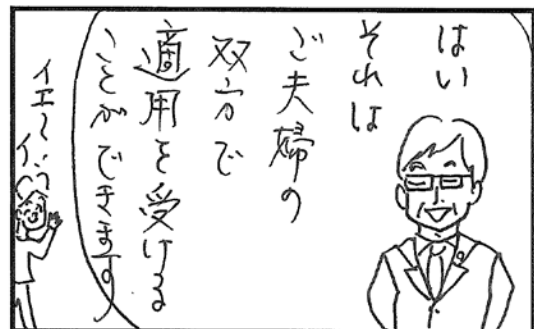 はい
それは
ご夫婦の
双方で
適用を受ける
ことができます
イエ〜イ